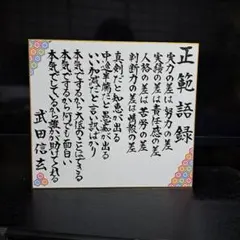 正範語録
実力の差は努力の差
実績の差は責任感の差
人格の差は苦労の差
判断力の差は情報の差
真剣だと知恵が出る
中途半端だと愚痴が出る
いい加減だと言い訳ばかり
本気でするから大抵のことはできる
本気でするから何でも面白い
本気でしているから誰かが助けてくれる
武田信玄